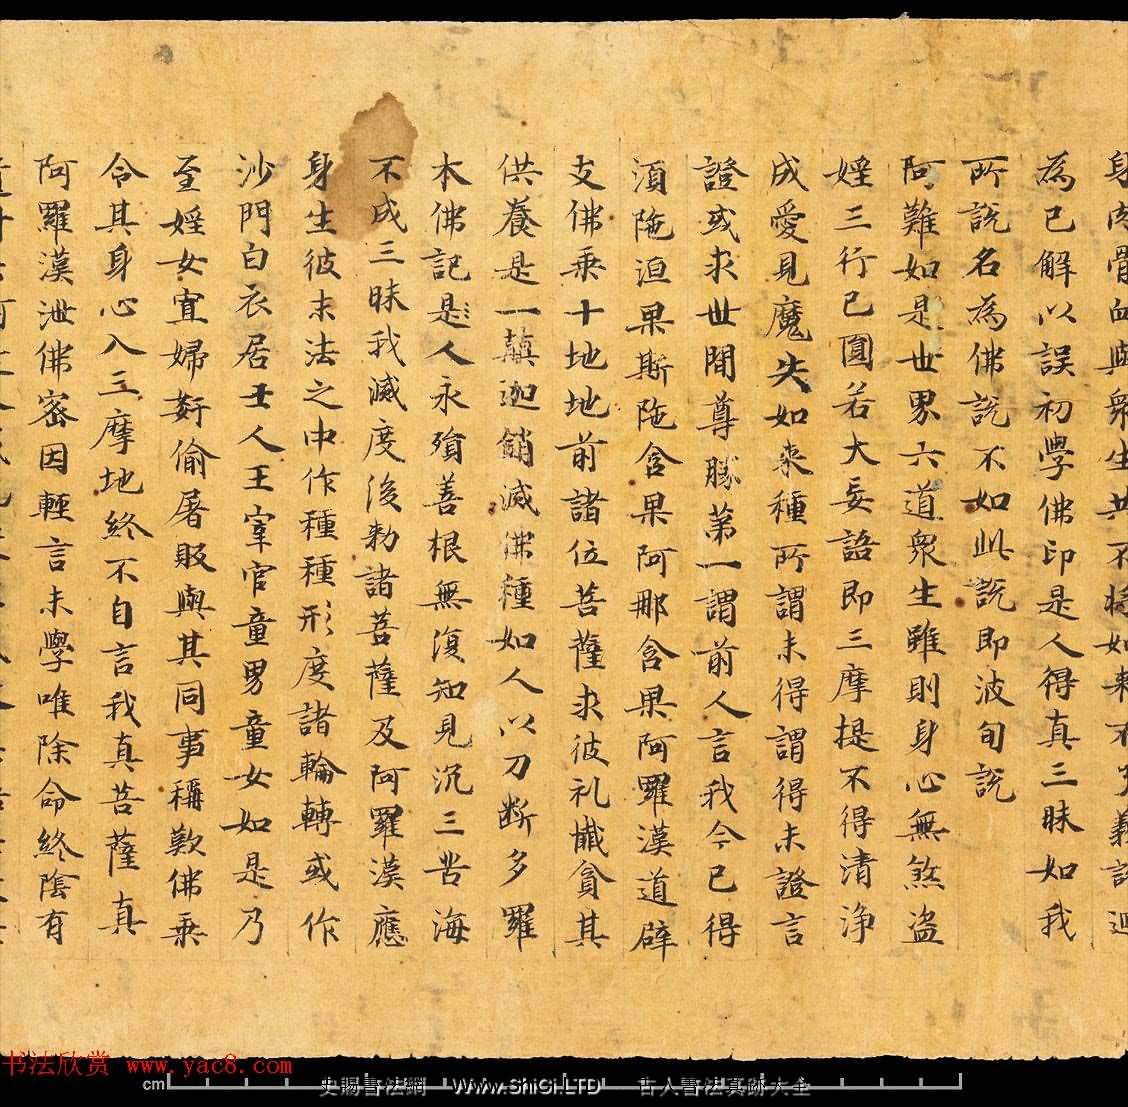 身肉骨血與衆生共不將如来不了義說迴
為已解以誤初學佛印是人得真三昧如我
所說名為佛說不如此說即波旬說
阿難如是世界六道衆生雖則身心無煞盗
婬三行已圓若大妄語即三摩提不得清浄
成愛見魔失如来種所謂未得謂得未證言
證或求世間尊勝第一謂前人言我今已得
湏陁洹果斯陁含果阿那含果阿羅漢道辟
支佛乗十地地前諸位菩薩求彼礼懺貪其
供養是一顛迦銷滅佛種如人以刀断多羅
木佛記是人永殞善根無復知見沉三苦海
不成三昧我滅度後勑諸菩薩及阿羅漢應
身生彼末法之中作種種形度諸輪轉或作
沙門白衣居士人王宰官童男童女如是乃
至婬女寡婦姧偷屠販與其同事稱歎佛乗
令其身心入三摩地終不自言我真菩薩真
阿羅漢泄佛密因輕言未學唯除命終陰有
书法欣赏 www.yac8.com
cm
史賜書法網 WWW.ShiCi.LTD 古人書法真跡大全